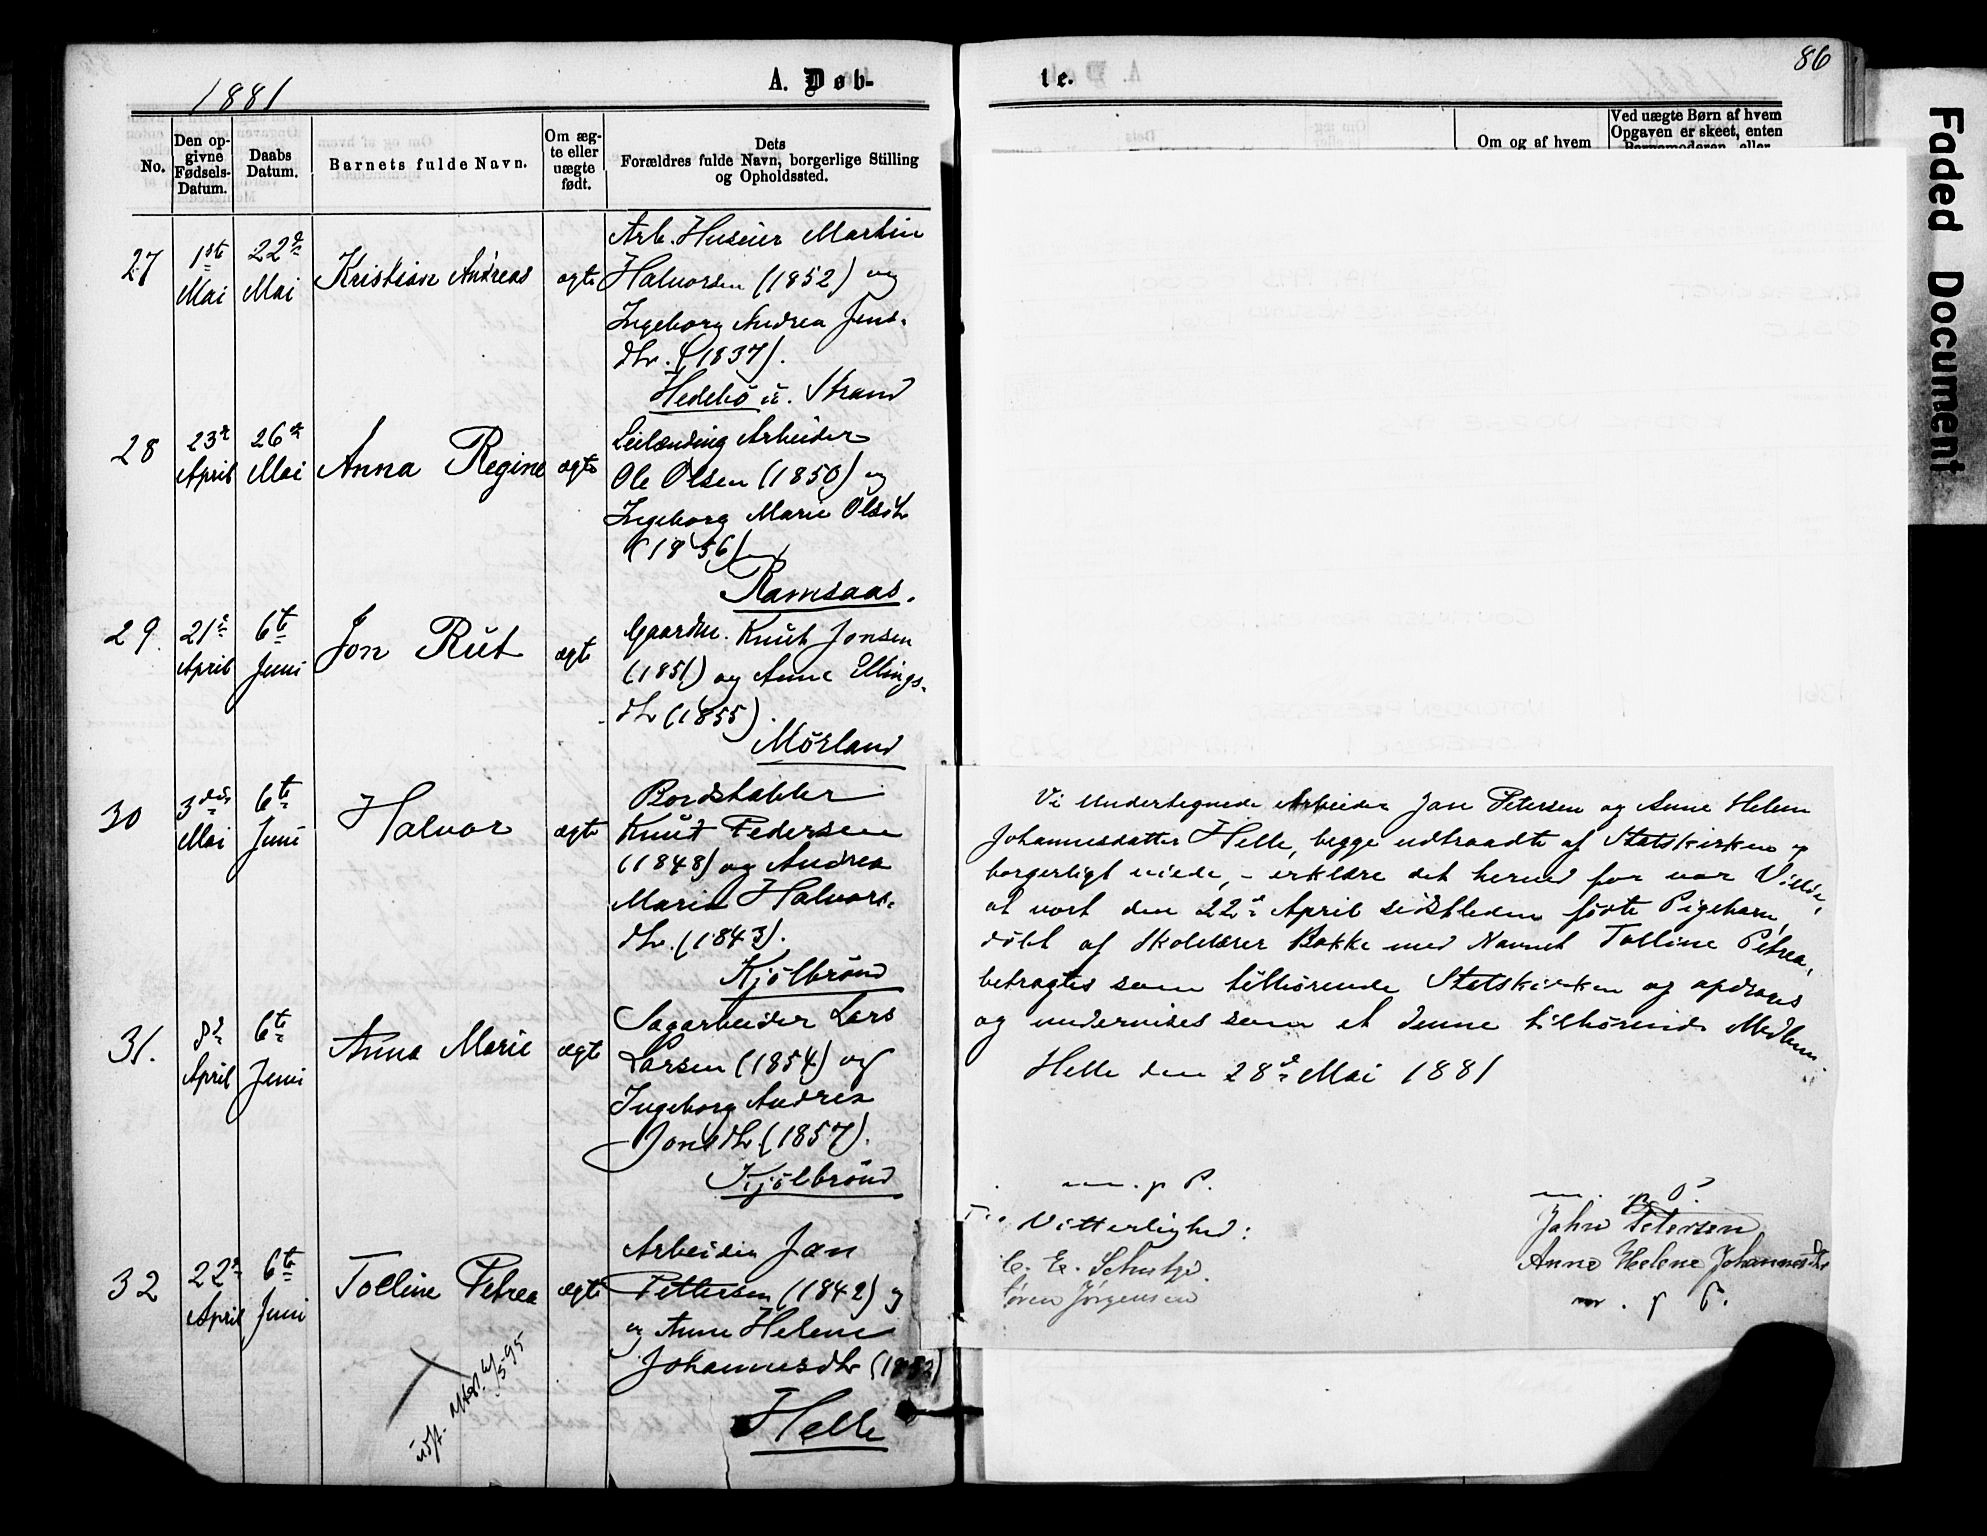 1881
A. Døb-
No.
Den op-
givne
Fødsels-
Datum.
Daabs
Datum.
Barnets fulde Navn.
Om æg-
te eller
uægte
født.
Dets
Forældres fulde Navn, borgerlige Stilling
og Opholdssted.
27
1ste
Mai
22de
Mai
Kristian Andreas
ægte
Arb. Huseier Martin
Halvorsen (1852) og
Ingeborg Andrea Jens-
dtr. (1837).
Hedebö u. Strand
28
23de
April
26de
Mai
Anna Regine
ægte
Leilænding Arbeider
Ole Olsen (1850) og
Ingeborg Marie Olsdtr
(1856)
Ramsaas.
29.
21de
April
6te
Juni
Jon Rüt
ægte
Gaardm. Knüt Jonsen
(1851) og Anne Ellings-
dtr (1855).
Mörland
30
3die
Mai
6te
Juni
Halvor
ægte
Bordstabler
Knüt Pedersen
(1848) og Andrea
Maria Halvors-
dtr. (1843).
Kjölbrönd
31.
8de
April
6te
Juni
Anna Marie
ægte
Sagarbeider Lars
Larsen (1854) og
Ingeborg Andrea
Jonsdtr. (1857).
Kjölbrönd
32
22de
April
6te
Juni
Tolline Petrea
ægte
Arbeider Jan
Pettersen (1842) og
og Anne Helene
Johannesdtr
Helle
te.
86
Om og af hvem
Ved uægte Børn af hvem
Opgaven er skeet, enten
Barnemoderen, eller
Faded Document
Vi undertegnede Arbeider Jan Petersen og Anne Helene
Johannesdatter Helle, begge udtraadte af Statskirken og
borgerligt viede, - erklære det herved for vor Villie,
at vort den 22de April sidstleden födte Pigebarn,
döbt af Skolelærer Bakke med Navnet Tolline Petrea,
betragtes som tilhörende Statskirken og opdrages
og undervises som et denne tilhörende Medlem.
Helle den 28de Mai 1881
m. p P.
Til Vitterlighed:
C. E. Schutze.
Sören Jörgensen
m. p P.
Jahn Petersen
Anne Helene Johannesdtr
m. p P.